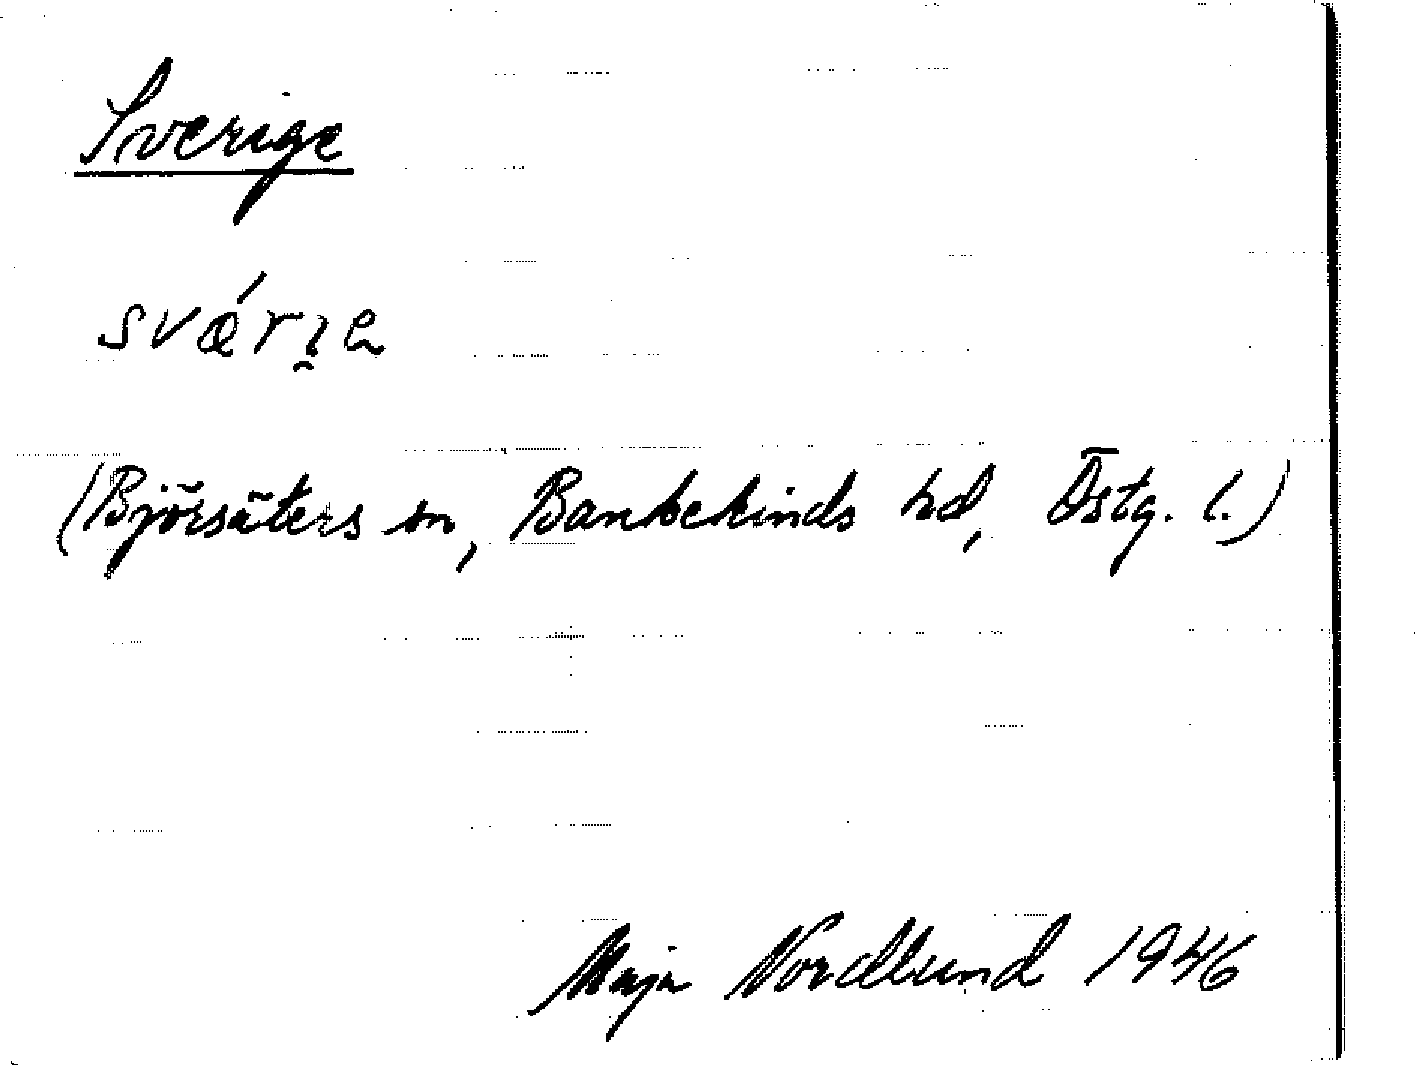 Sverige
svǽrı̯e
(Björsäters sn, Bankekinds hd, Östg. l.)
Maja Nordlund 1946